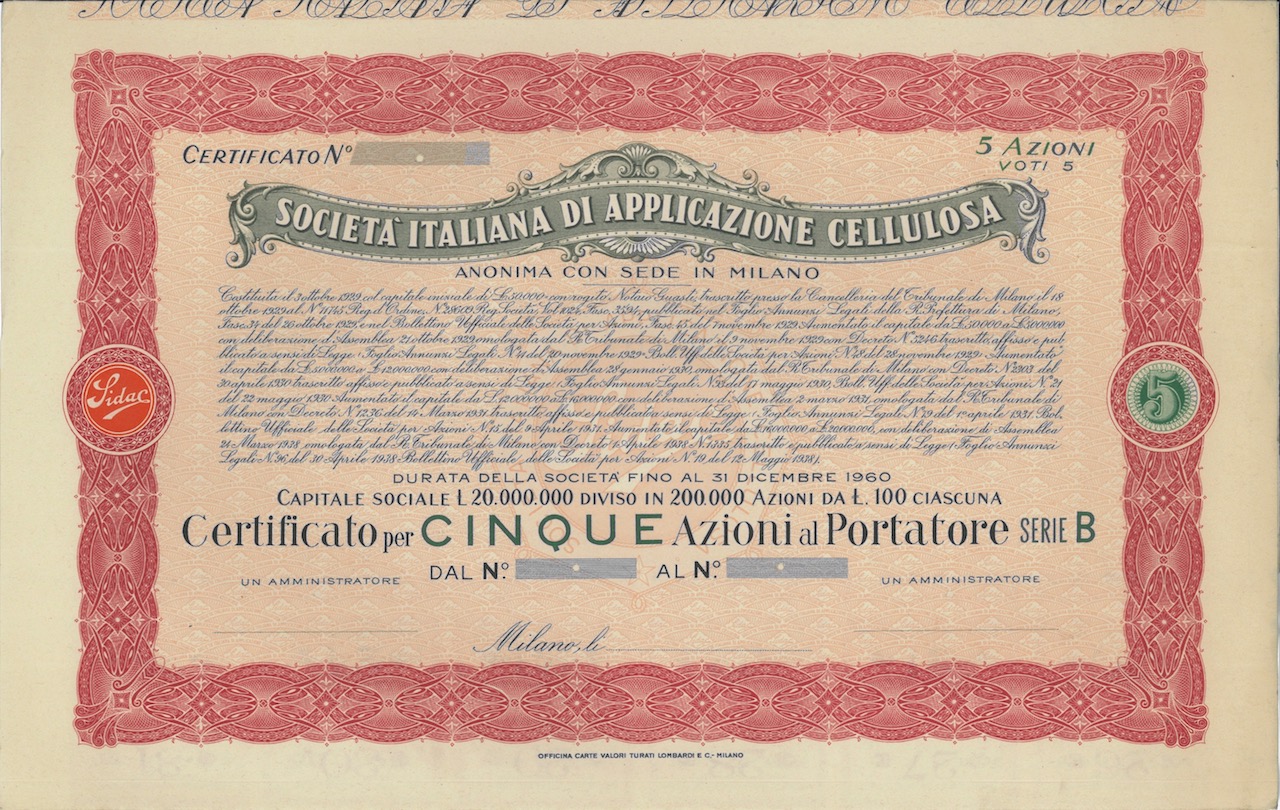 CERTIFICATO Nº
5 AZIONI
VOTI 5
SOCIETÀ ITALIANA DI APPLICAZIONE CELLULOSA
ANONIMA CON SEDE IN MILANO
Costituita il 3 ottobre 1929 col capitale iniziale di £ 50.000 con rogito Notaio Guasti, trascritto presso la Cancelleria del Tribunale di Milano il 18
ottobre 1929 al Nº 11745 Reg. d'Ordine, Nº 28609 Reg. Società, Vol. 1024, Fasc. 3594, pubblicato nel Foglio Annunzi Legali della R. Prefettura di Milano,
Fasc. 34 del 26 ottobre 1929, e nel Bollettino Ufficiale delle Società per Azioni, Fasc. 45 del 7 novembre 1929. Aumentato il capitale da £ 50.000 a £ 5000000
con deliberazione d'Assemblea 21 ottobre 1929 omologata dal R. Tribunale di Milano il 9 novembre 1929 con Decreto Nº 3246 trascritto, affisso e pub-
blicato a sensi di Legge (Foglio Annunzi Legali Nº 41 del 20 novembre 1929 - Boll. Uff. delle Società per Azioni Nº 48 del 28 novembre 1929). Aumentato
il capitale da £ 5000000 a £ 12000000 con deliberazione di Assemblea 28 gennaio 1930, omologata dal R. Tribunale di Milano con Decreto Nº 2303 del
30 aprile 1930 trascritto affisso e pubblicato a senso di Legge (Foglio Annunzi Legali Nº 93 del 17 maggio 1930, Boll. Uff. delle Società per Azioni Nº 21
del 22 maggio 1930. Aumentato il capitale da £ 12000000 a £ 16000000 con deliberazione di Assemblea 2 marzo 1931, omologata dal R. Tribunale di
Milano con Decreto Nº 1236 del 14 Marzo 1931, trascritto affisso e pubblicato a sensi di Legge (Foglio Annunzi Legale Nº 79 del 1º aprile 1931. Bol-
lettino Ufficiale delle Società per Azioni Nº 15 del 9 Aprile 1931. Aumentato il capitale da £ 16000000 a £ 20000000, con deliberazione di Assemblea
24 Marzo 1938 omologata dal R. Tribunale di Milano con Decreto 1 Aprile 1938 Nº 1335, trascritto e pubblicato a sensi di Legge (Foglio Annunzi
Legali Nº 96, del 30 Aprile 1938 Bollettino Ufficiale delle Società per Azioni Nº 19, del 12 Maggio 1938).
Sidac
5
DURATA DELLA SOCIETÀ FINO AL 31 DICEMBRE 1960
CAPITALE SOCIALE Ł 20.000.000 DIVISO IN 200.000 AZIONI DA Ł. 100 CIASCUNA
Certificato per CINQUE Azioni al Portatore SERIE B
DAL Nº. AL Nº.
UN AMMINISTRATORE
UN AMMINISTRATORE
Milano, li
OFFICINA CARTE VALORI TURATI LOMBARDI E C. - MILANO